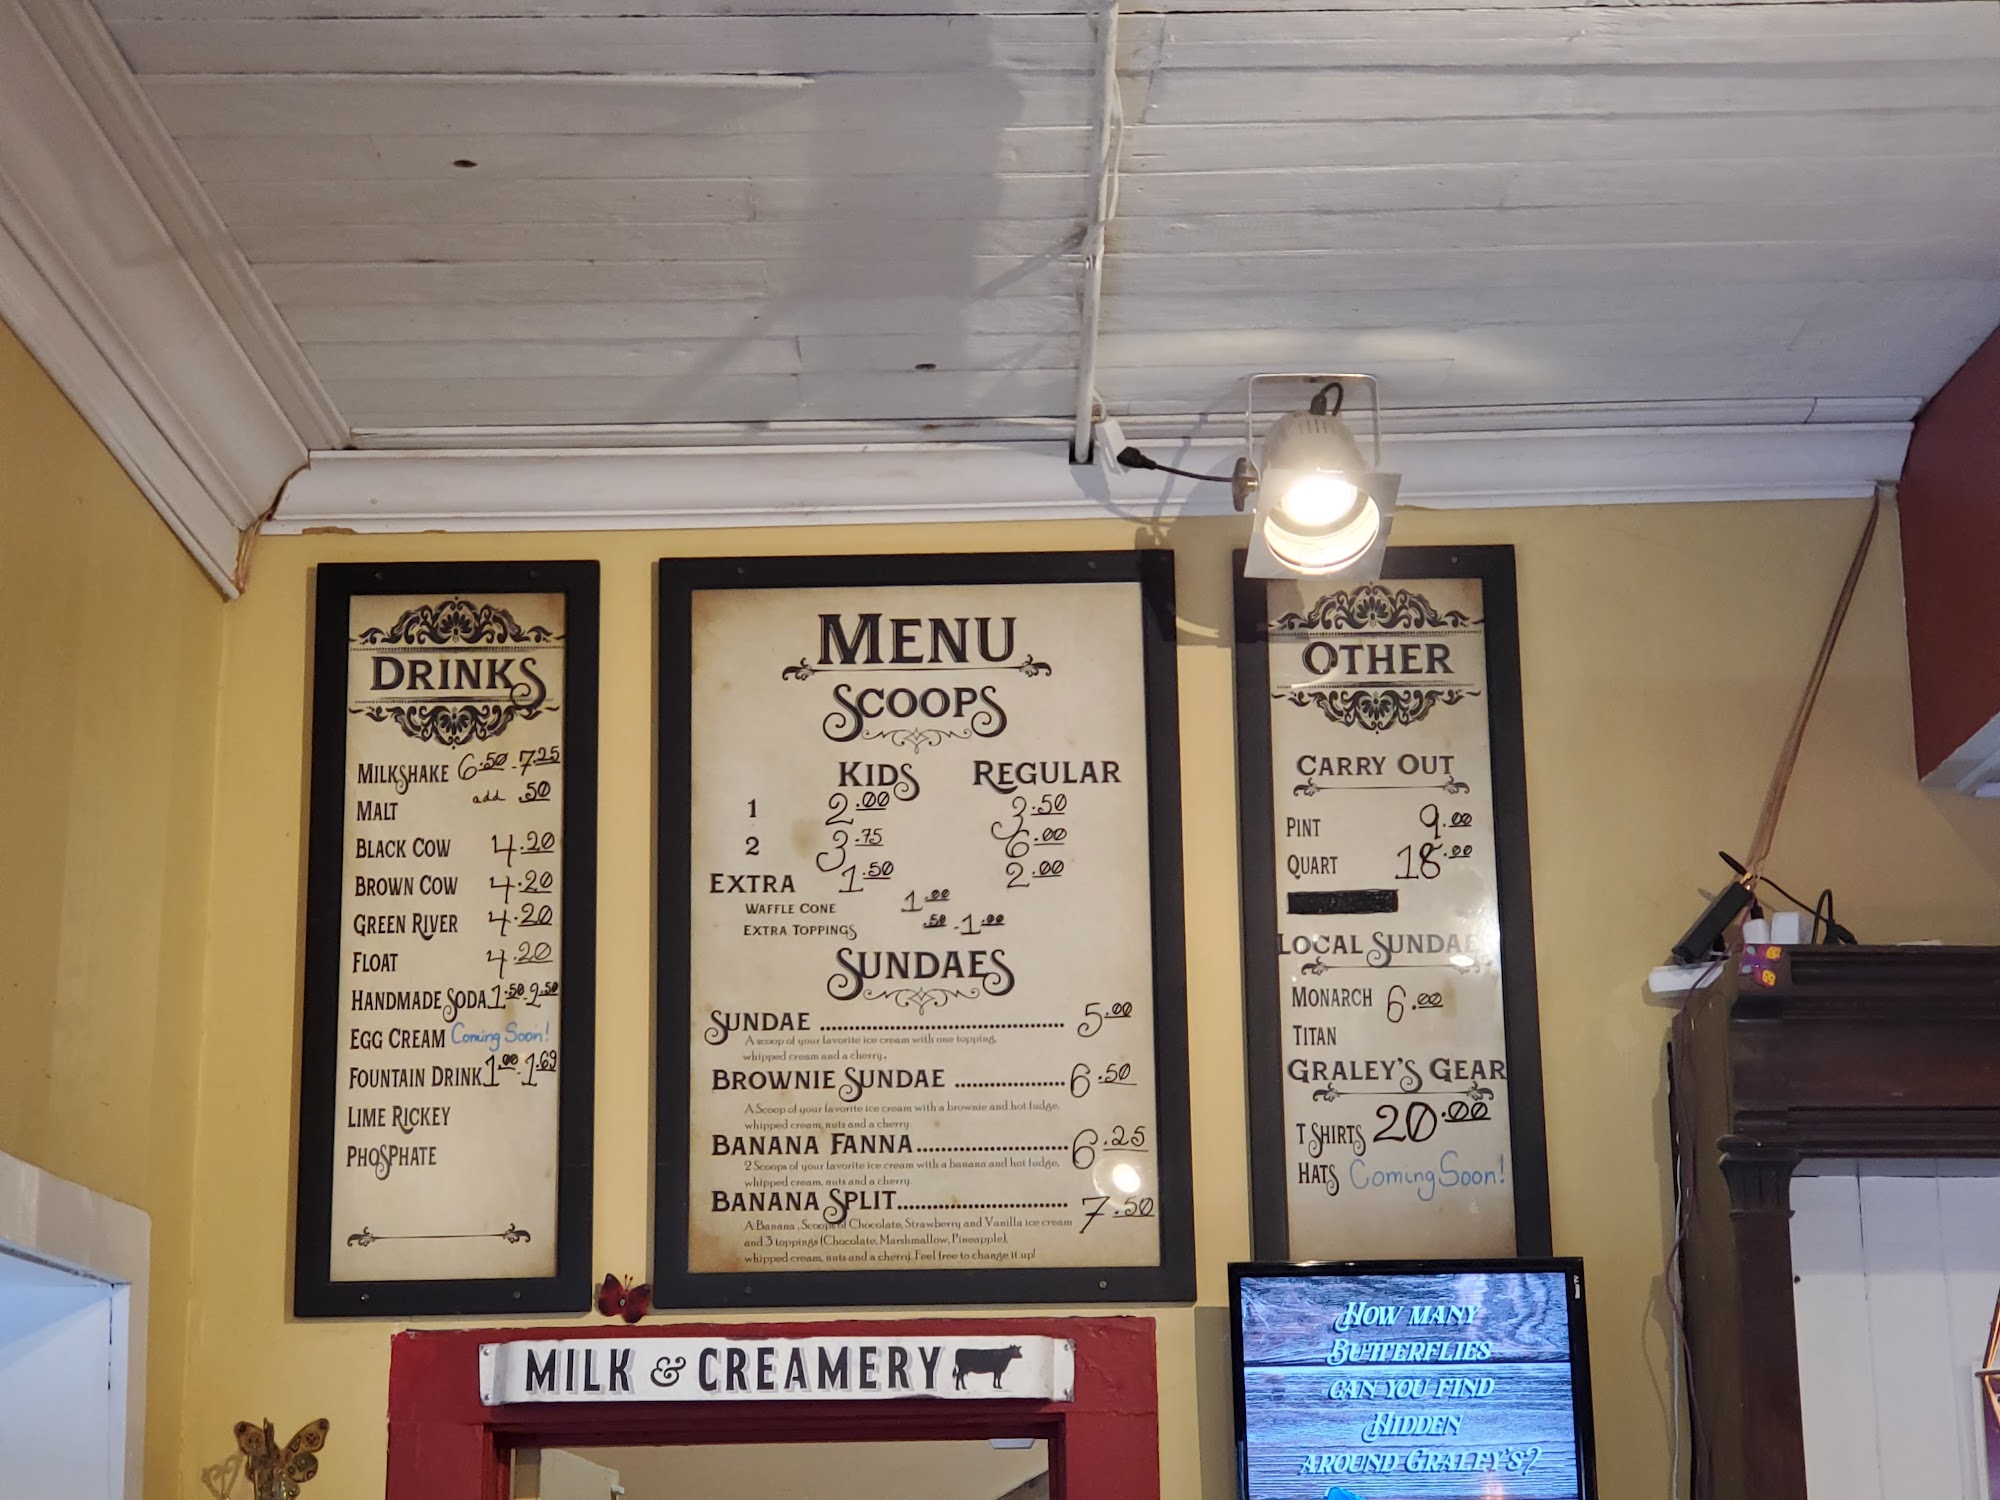 DRINKS
MILKSHAKE 6.50-7.25
MALT add .50
BLACK COW 4.20
BROWN COW 4.20
GREEN RIVER 4.20
FLOAT 4.20
HANDMADE SODA 1.50-2.50
EGG CREAM Coming Soon!
FOUNTAIN DRINK 1.00-1.69
LIME RICKEY
PHOSPHATE
MENU
SCOOPS
KIDS REGULAR
1 2.00 3.50
2 3.75 6.00
EXTRA 1.50 2.00
WAFFLE CONE 1.00
EXTRA TOPPINGS .50-1.00
SUNDAES
SUNDAE ........................................ 5.00
A scoop of your favorite ice cream with one topping,
whipped cream and a cherry.
BROWNIE SUNDAE .................... 6.50
A Scoop of your favorite ice cream with a brownie and hot fudge,
whipped cream, nuts and a cherry.
BANANA FANNA........................... 6.25
2 Scoops of your favorite ice cream with a banana and hot fudge,
whipped cream, nuts and a cherry.
BANANA SPLIT.............................. 7.50
A Banana, Scoops of Chocolate, Strawberry and Vanilla ice cream
and 3 toppings (Chocolate, Marshmallow, Pineapple),
whipped cream, nuts and a cherry. Feel free to change it up!
OTHER
CARRY OUT
PINT 9.00
QUART 18.00
LOCAL SUNDAE
MONARCH 6.00
TITAN
GRALEY'S GEAR
T SHIRTS 20.00
HATS Coming Soon!
MILK & CREAMERY
HOW MANY
BUTTERFLIES
CAN YOU FIND
HIDDEN
AROUND GRALEY'S?